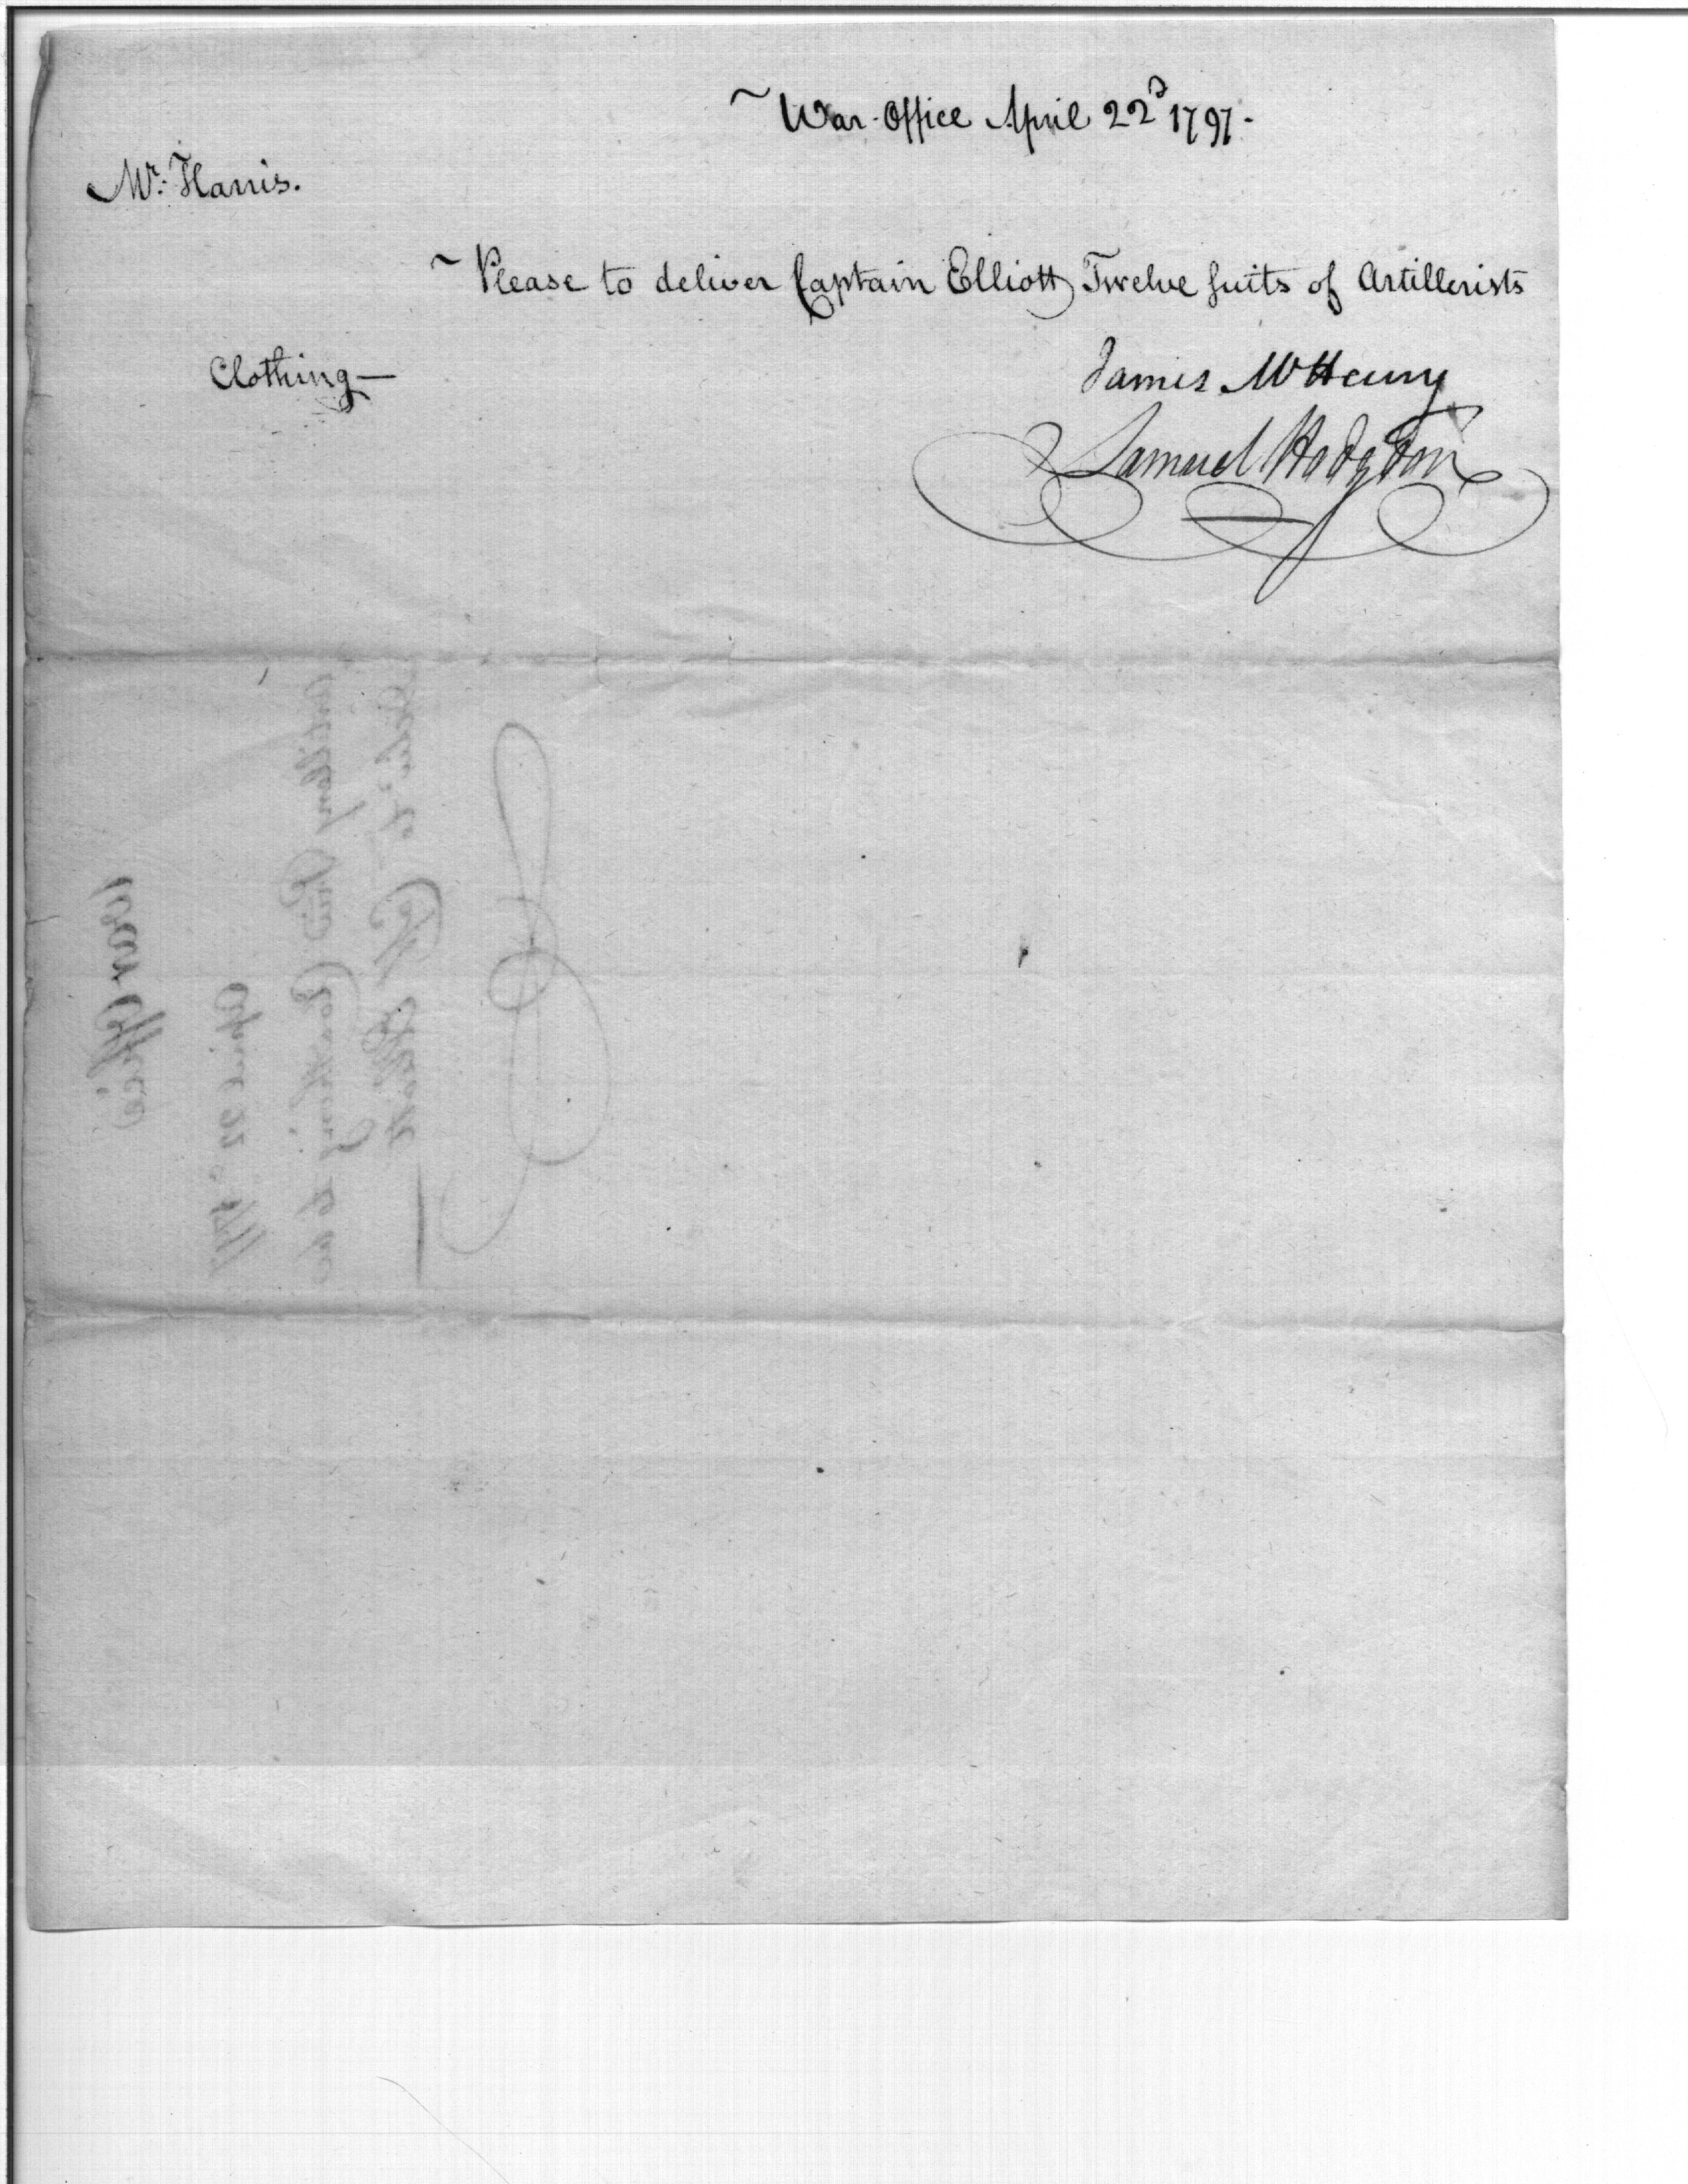 ~ War-Office April 22ᵈ 1797-
Mʳ: Harris.
~ Please to deliver Captain Elliott Twelve Suits of Artillerists
Clothing—
James McHenry
Samuel Hodgdon
War Office
April 22ᵈ